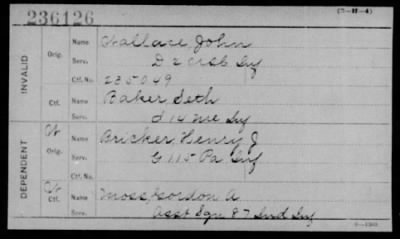 236126
(3-H-4)
INVALID
Orig.
Name Wallace John
Serv. D 2 U S C Inf
Ctf. No. 285049
Ctf.
Name Baker Seth
Serv. d 14 Me Inf
DEPENDENT
Orig.
Name Bricker, Henry J
Serv. G 115 Pa Inf
Ctf. No.
Ctf.
Name Moss Gordon A
Serv. Asst Sgn 87 Ind Inf